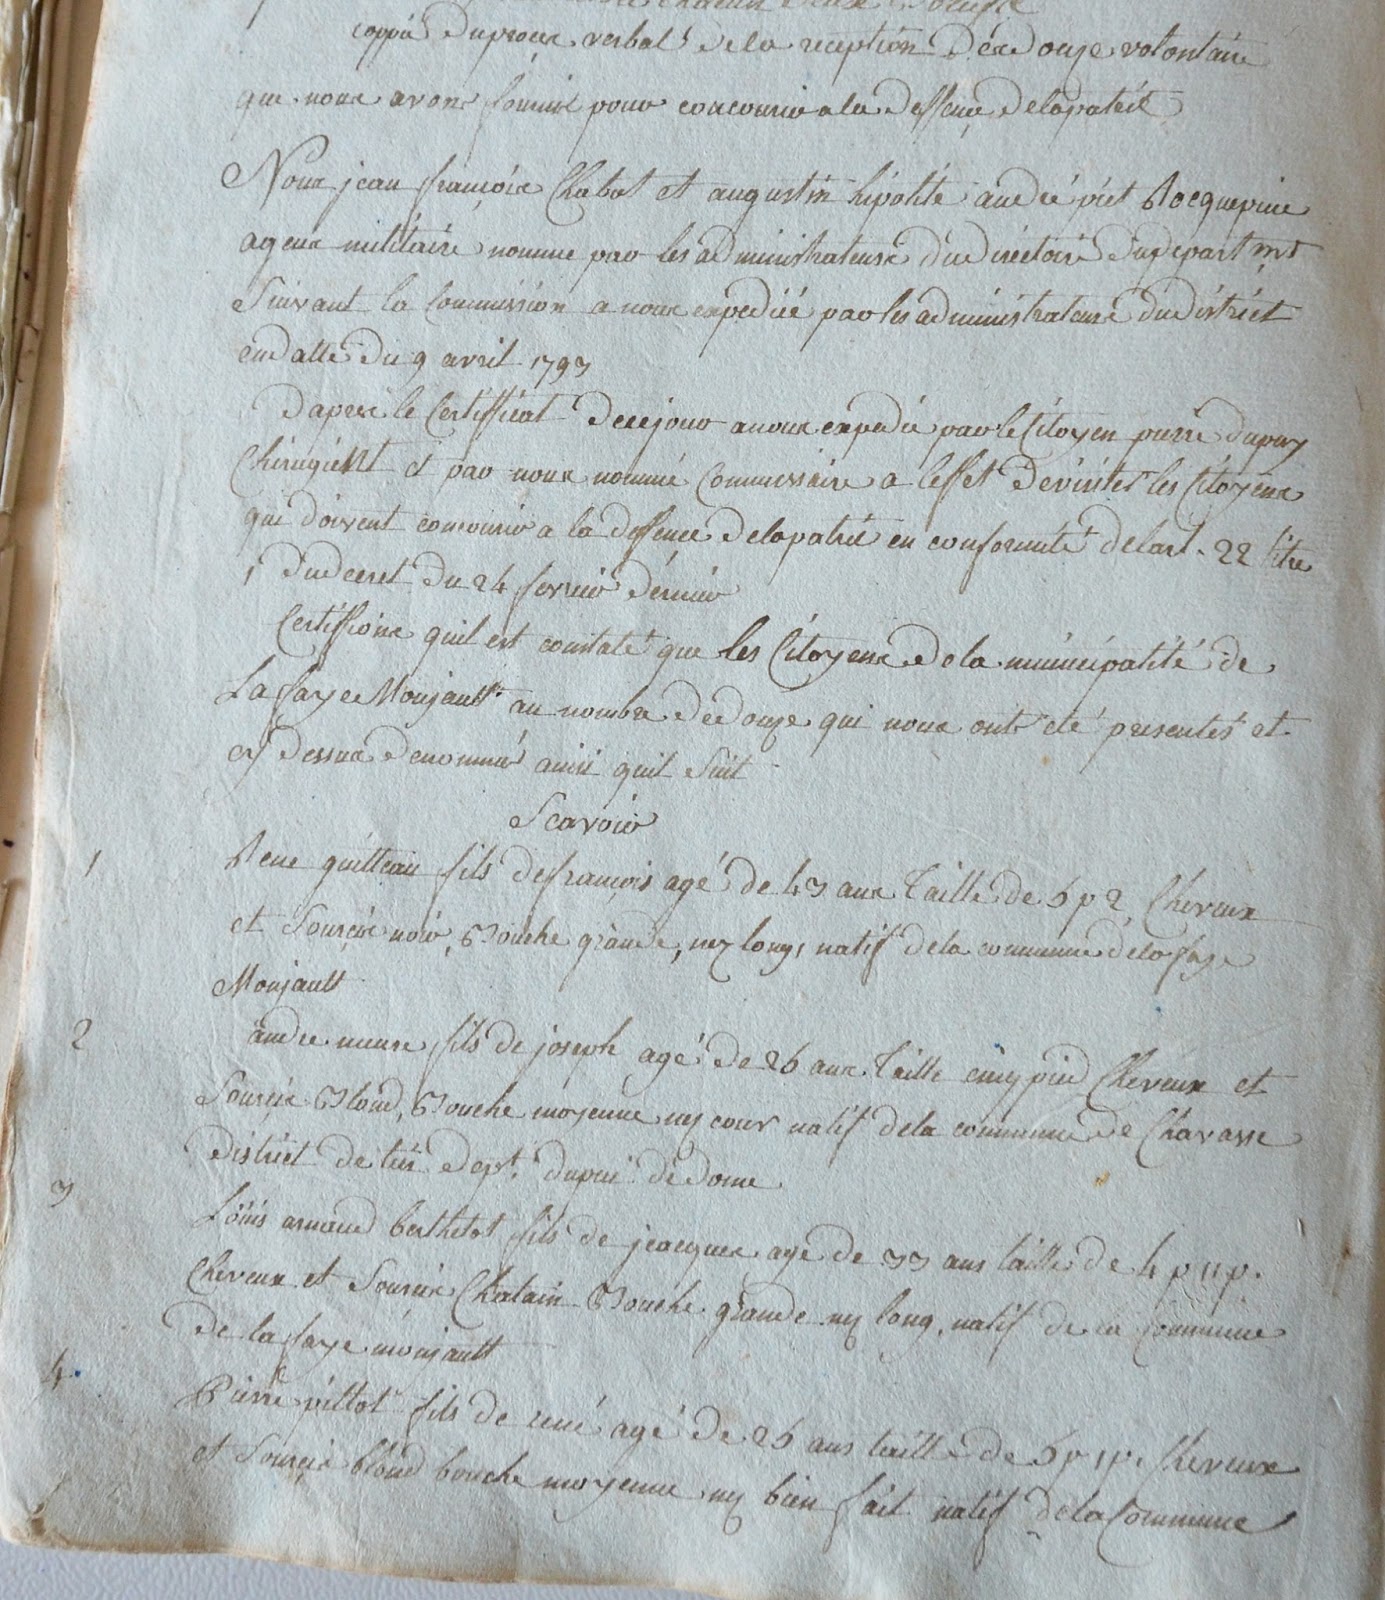 coppie du proces verbal de la reception des douze volontaire
que nous avons fournis pour concourir a la deffence de la patrie
Nous jean françois Chabot et augustin hipolite andré piet Rocquepine
agens militaire nomme par les administrateurs du directoire du depart mt
Suivant la Commission a nous expediée par les administrateurs du district
en datte du 9 avril 1793
D'apres le Certifficat de ce jour a nous expedié par le Citoyen pierre dupuy
Chirugient et par nous nommé Commissaire a l'effet de visiter les Citoyens
qui doivent concourir a la deffence de la patrie en conformité de l'art. 22 titre
1 du decret du 24 fevrier dernier
Certiffions quil est constaté que les Citoyens de la municipalité de
La faye Monjault au nombre de douze qui nous ont été presentés et
cy dessus denommé ainsi quil suit
Scavoir
1 Rene quitteau fils de françois agé de 43 ans Taille de 5 p 2, Cheveux
et Sourcis noir, Bouche grande, nez long, natif de la commune de la faye
Monjault
2 andre fils de joseph agé de 26 ans. Taille cinq pied Cheveux et
Sourcis Blond, Bouche moyenne nez cour natif de la commune de Chavasse
District de tier dept. du pui de dome
3 Loüis arnaud berthelot fils de jeacques agé de 33 ans taille de 4 p 11 p.
Cheveux et Sourcis Chatain Bouche grande nez long, natif de la Commune
de la faye monjault
4 Pierre pillot fils de rené agé de 26 ans taille de 5 p 1 p. Cheveux
et Sourcis blond bouche moyenne nez bien fait natif de la Commune